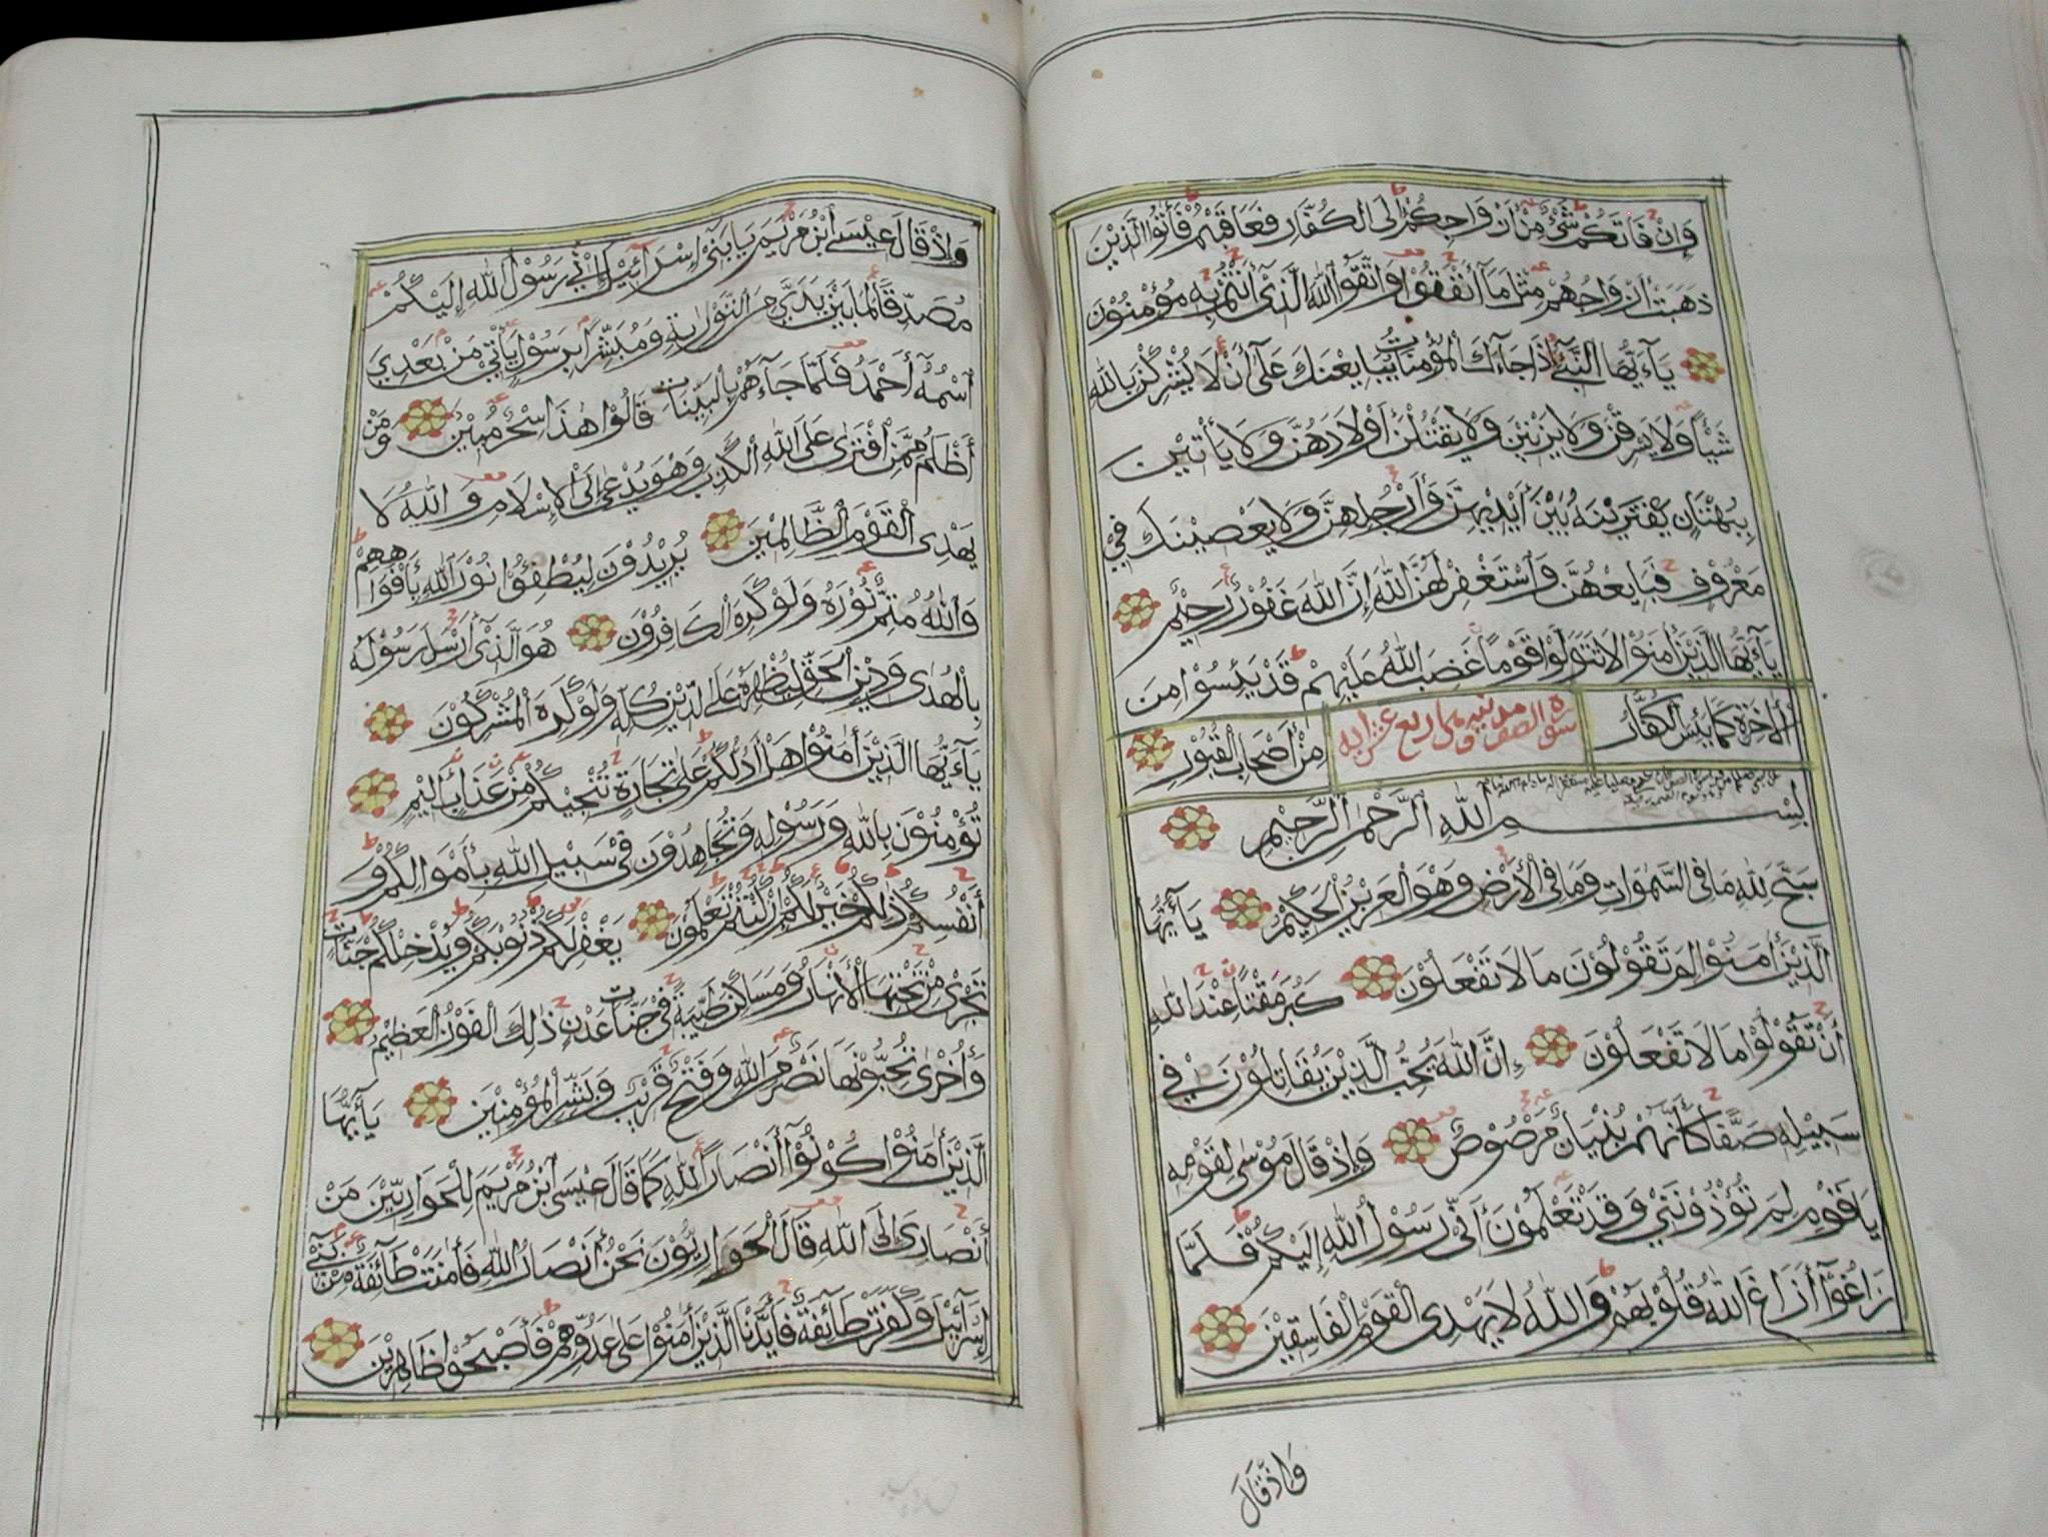 وَإِنْ فَاتَكُمْ شَيْءٌ مِنْ أَزْوَاجِكُمْ إِلَى الْكُفَّارِ فَعَاقَبْتُمْ فَأٰتُوا الَّذِيْنَ
ذَهَبَتْ أَزْوَاجُهُمْ مِثْلَ مَآ أَنْفَقُوْا وَاتَّقُوْا اللّٰهَ الَّذِىْ أَنْتُمْ بِهِ مُؤْمِنُوْنَ
يَآءَيُّهَا النَّبِىُّ إِذَا جَآءَكَ الْمُؤْمِنَاتُ يُبَايِعْنَكَ عَلَىٰٓ أَنْ لَا يُشْرِكْنَ بِاللّٰهِ
شَيْئًا وَلَا يَسْرِقْنَ وَلَا يَزْنِيْنَ وَلَا يَقْتُلْنَ أَوْلَادَهُنَّ وَلَا يَأْتِيْنَ
بِبُهْتَانٍ يَفْتَرِيْنَهُ بَيْنَ أَيْدِيْهِنَّ وَأَرْجُلِهِنَّ وَلَا يَعْصِيْنَكَ فِيْ
مَعْرُوْفٍ فَبَايِعْهُنَّ وَاسْتَغْفِرْ لَهُنَّ اللّٰهَ إِنَّ اللّٰهَ غَفُوْرٌ رَحِيْمٌ
يَآءَيُّهَا الَّذِيْنَ أٰمَنُوْا لَا تَتَوَلَّوْا قَوْمًا غَضِبَ اللّٰهُ عَلَيْهِمْ قَدْ يَئِسُوْا مِنَ
الْأٰخِرَةِ كَمَا يَئِسَ الْكُفَّارُ مِنْ أَصْحَابِ الْقُبُوْرِ
سورة الصف مدنية
بِسْمِ اللّٰهِ الرَّحْمٰنِ الرَّحِيْمِ
سَبَّحَ لِلّٰهِ مَا فِى السَّمٰوَاتِ وَمَا فِى الْأَرْضِ وَهُوَ الْعَزِيْزُ الْحَكِيْمُ يَآءَيُّهَا
الَّذِيْنَ أٰمَنُوْا لِمَ تَقُوْلُوْنَ مَا لَا تَفْعَلُوْنَ كَبُرَ مَقْتًا عِنْدَ اللّٰهِ
أَنْ تَقُوْلُوْا مَا لَا تَفْعَلُوْنَ إِنَّ اللّٰهَ يُحِبُّ الَّذِيْنَ يُقَاتِلُوْنَ فِيْ
سَبِيْلِهِ صَفًّا كَأَنَّهُمْ بُنْيَانٌ مَرْصُوْصٌ وَإِذْ قَالَ مُوْسَىٰ لِقَوْمِهِ
يَاقَوْمِ لِمَ تُؤْذُوْنَنِيْ وَقَدْ تَعْلَمُوْنَ أَنِّيْ رَسُوْلُ اللّٰهِ إِلَيْكُمْ فَلَمَّا
زَاغُوْٓا أَزَاغَ اللّٰهُ قُلُوْبَهُمْ وَاللّٰهُ لَا يَهْدِى الْقَوْمَ الْفَاسِقِيْنَ
وَإِذْ قَالَ
وَإِذْ قَالَ عِيْسَى ابْنُ مَرْيَمَ يَابَنِيْٓ إِسْرَآئِيْلَ إِنِّيْ رَسُوْلُ اللّٰهِ إِلَيْكُمْ
مُصَدِّقًا لِمَا بَيْنَ يَدَيَّ مِنَ التَّوْرَاىةِ وَمُبَشِّرًا بِرَسُوْلٍ يَأْتِيْ مِنْ بَعْدِي
اسْمُهُ أَحْمَدُ فَلَمَّا جَآءَهُمْ بِالْبَيِّنَاتِ قَالُوْا هٰذَا سِحْرٌ مُبِيْنٌ وَمَنْ
أَظْلَمُ مِمَّنِ افْتَرَىٰ عَلَى اللّٰهِ الْكَذِبَ وَهُوَ يُدْعَىٰٓ إِلَى الْإِسْلَامِ وَاللّٰهُ لَا
يَهْدِى الْقَوْمَ الظَّالِمِيْنَ يُرِيْدُوْنَ لِيُطْفِئُوْا نُوْرَ اللّٰهِ بِأَفْوَاهِهِمْ
وَاللّٰهُ مُتِمُّ نُوْرِهِ وَلَوْ كَرِهَ الْكَافِرُوْنَ هُوَ الَّذِىْٓ أَرْسَلَ رَسُوْلَهُ
بِالْهُدَىٰ وَدِيْنِ الْحَقِّ لِيُظْهِرَهُ عَلَى الدِّيْنِ كُلِّهِ وَلَوْ كَرِهَ الْمُشْرِكُوْنَ
يَآءَيُّهَا الَّذِيْنَ أٰمَنُوْا هَلْ أَدُلُّكُمْ عَلَىٰ تِجَارَةٍ تُنْجِيْكُمْ مِنْ عَذَابٍ أَلِيْمٍ
تُؤْمِنُوْنَ بِاللّٰهِ وَرَسُوْلِهِ وَتُجَاهِدُوْنَ فِىْ سَبِيْلِ اللّٰهِ بِأَمْوَالِكُمْ وَ
أَنْفُسِكُمْ ذٰلِكُمْ خَيْرٌ لَكُمْ إِنْ كُنْتُمْ تَعْلَمُوْنَ يَغْفِرْ لَكُمْ ذُنُوْبَكُمْ وَيُدْخِلْكُمْ جَنَّاتٍ
تَجْرِىْ مِنْ تَحْتِهَا الْأَنْهَارُ وَمَسَاكِنَ طَيِّبَةً فِىْ جَنَّاتِ عَدْنٍ ذٰلِكَ الْفَوْزُ الْعَظِيْمُ
وَأُخْرَىٰ تُحِبُّوْنَهَا نَصْرٌ مِنَ اللّٰهِ وَفَتْحٌ قَرِيْبٌ وَبَشِّرِ الْمُؤْمِنِيْنَ يَآءَيُّهَا
الَّذِيْنَ أٰمَنُوْا كُوْنُوْٓا أَنْصَارَ اللّٰهِ كَمَا قَالَ عِيْسَى ابْنُ مَرْيَمَ لِلْحَوَارِيِّيْنَ مَنْ
أَنْصَارِىٓ إِلَى اللّٰهِ قَالَ الْحَوَارِيُّوْنَ نَحْنُ أَنْصَارُ اللّٰهِ فَأٰمَنَتْ طَآئِفَةٌ مِنْ بَنِيْٓ
إِسْرَآئِيْلَ وَكَفَرَتْ طَآئِفَةٌ فَأَيَّدْنَا الَّذِيْنَ أٰمَنُوْا عَلَىٰ عَدُوِّهِمْ فَأَصْبَحُوْا ظَاهِرِيْنَ